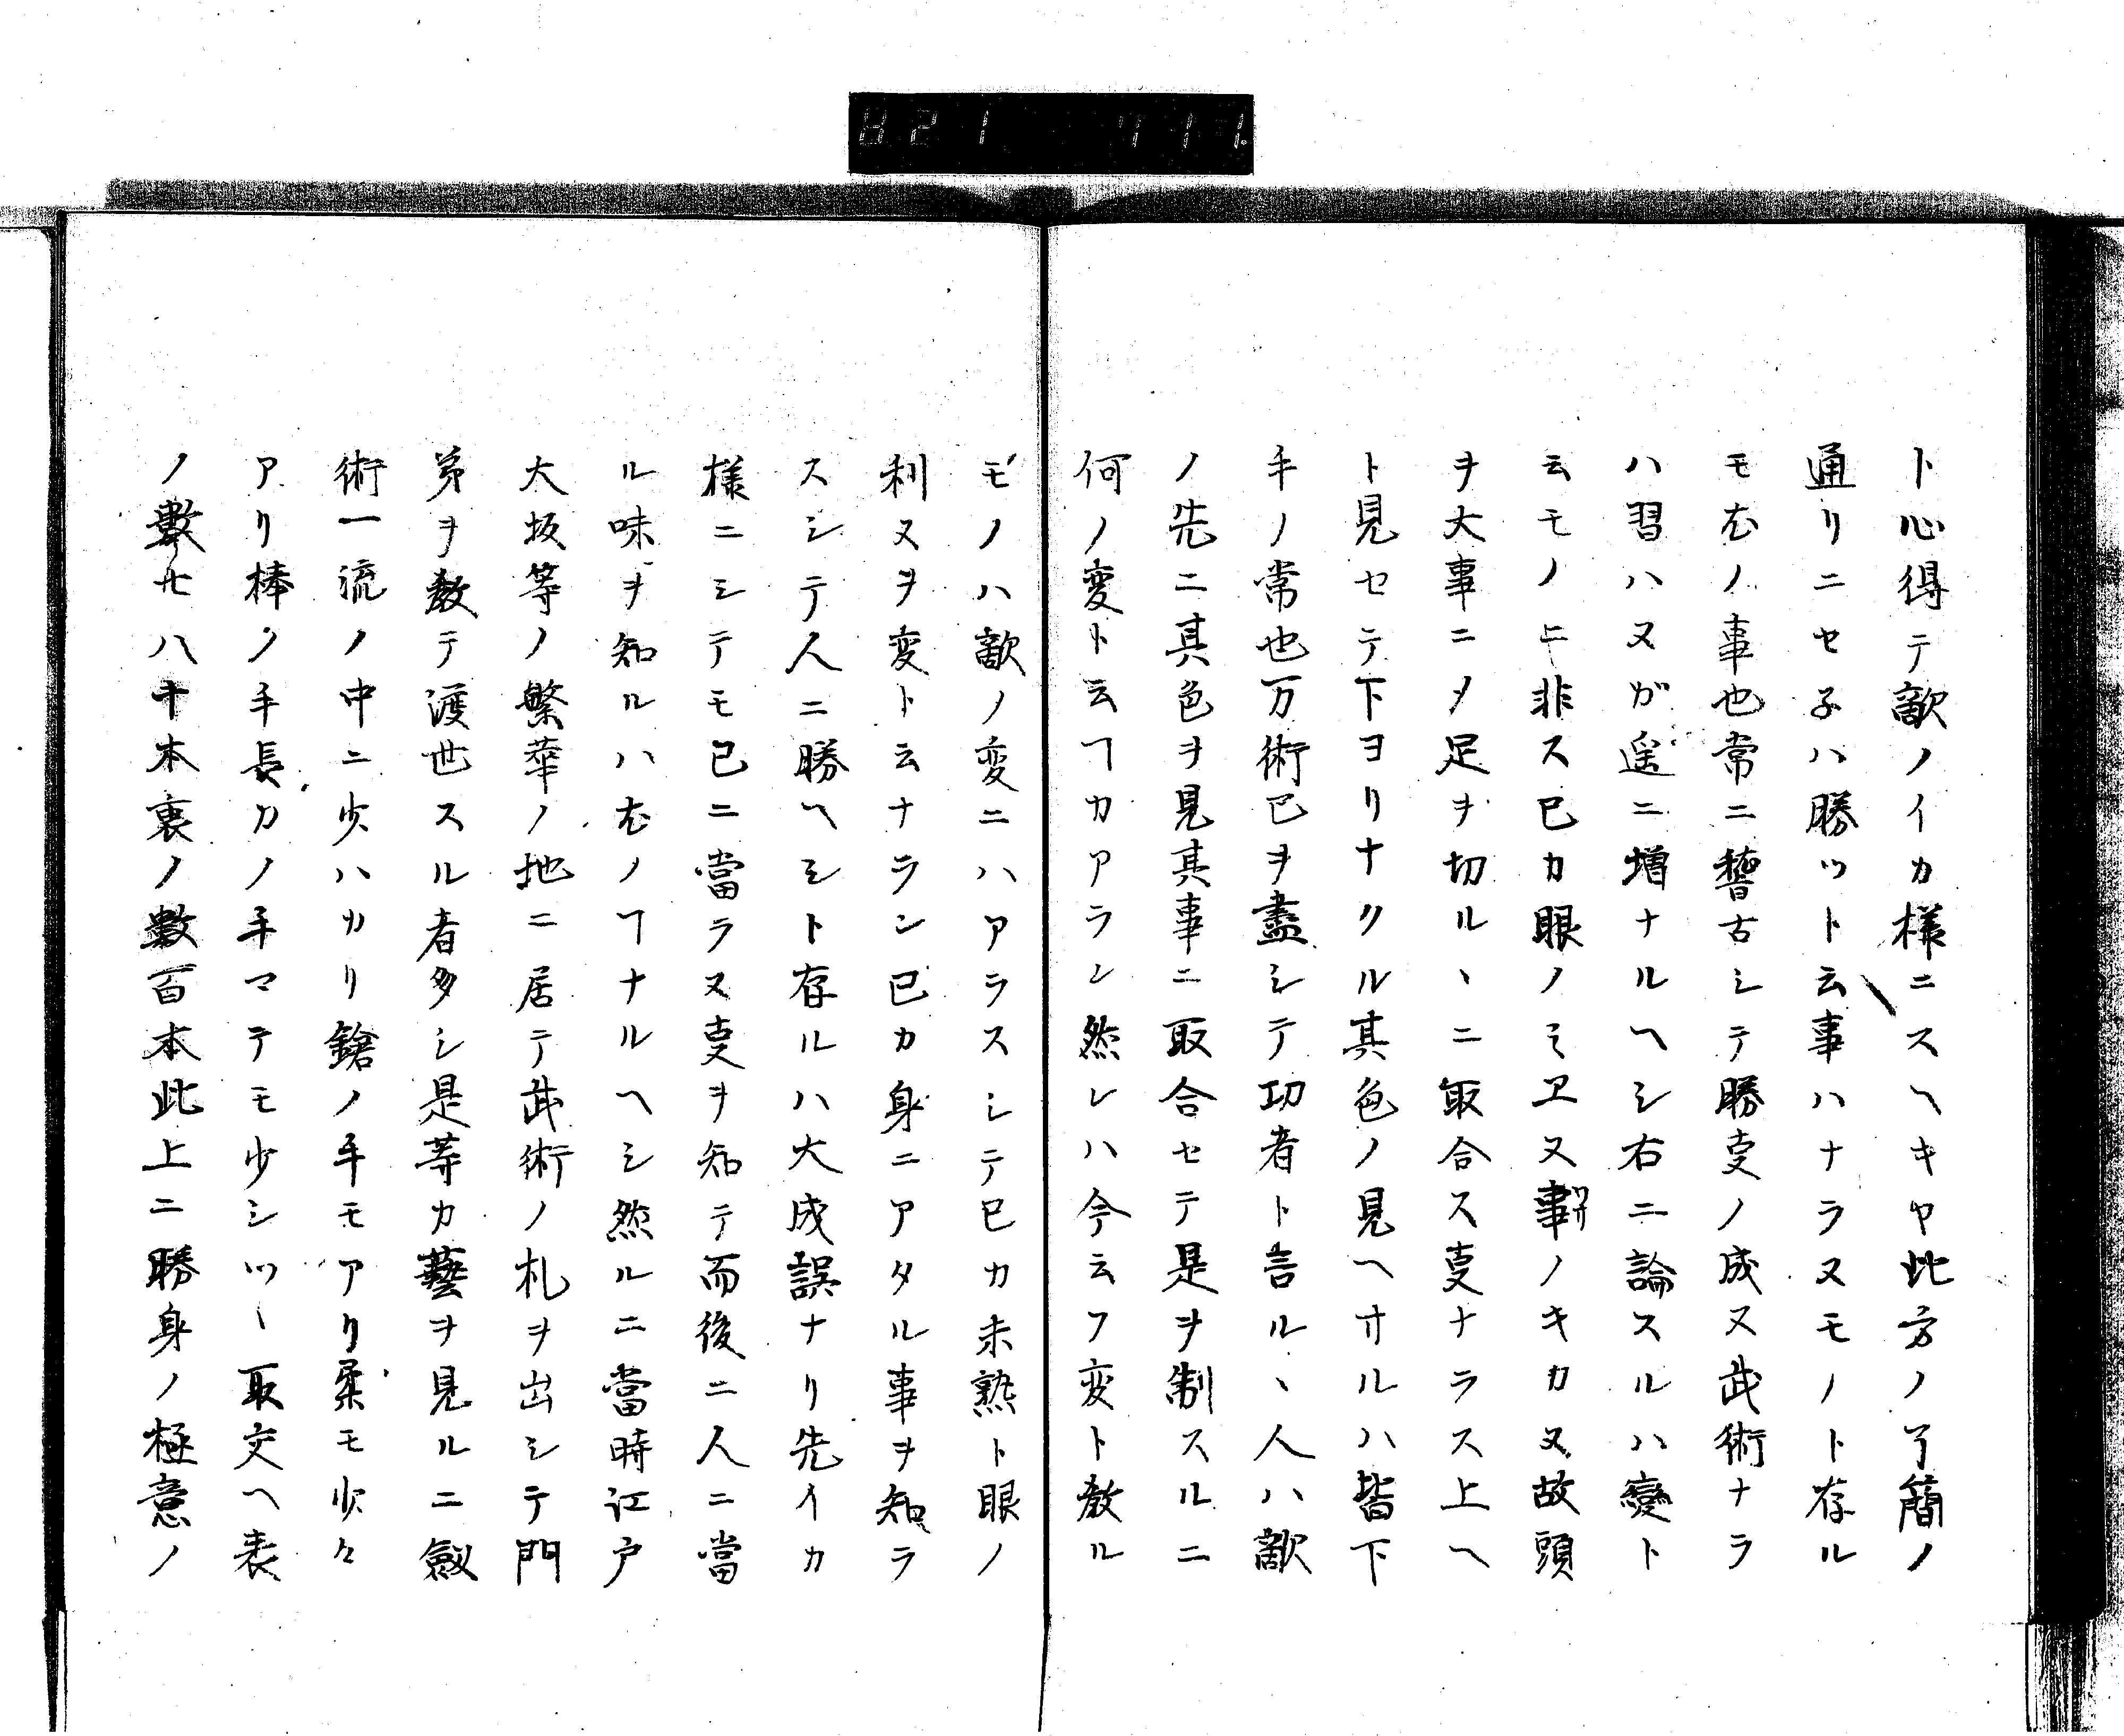 821 711.
ト心得テ敵ノイカ様ニスヘキヤ此方ノ了簡ノ
通リニセ子ハ勝ツト云事ハナラヌモノト存ル
モ尤ノ事也常ニ稽古シテ勝叓ノ成ヌ武術ナラ
ハ習ハヌガ遥ニ増ナルヘシ右ニ論スルハ變ト
云モノニ非ス已カ眼ノミヱヌ事ノキカヌ故頭
ヲ大事ニメ足ヲ切ルヽニ取合ス叓ナラス上ヘ
ト見セテ下ヨリナクル其色ノ見ヘオルハ皆下
手ノ常也万術已ヲ盡シテ功者ト言ルヽ人ハ敵
ノ先ニ其色ヲ見其事ニ取合セテ是ヲ制スルニ
何ノ変ト云ヿカアラン然レハ今云フ変ト教ル
モノハ敵ノ変ニハアラスシテ已カ未熟ト眼ノ
利ヌヲ変ト云ナラン已カ身ニアタル事ヲ知ラ
スシテ人ニ勝ヘシト存ルハ大成誤ナリ先イカ
様ニシテモ已ニ當ラヌ叓ヲ知テ而後ニ人ニ當
ル味ヲ知ルハ尤ノヿナルヘシ然ルニ當時江戸
大坂等ノ繁華ノ地ニ居テ武術ノ札ヲ出シテ門
弟ヲ教テ渡世スル者多シ是等カ藝ヲ見ルニ劔
術一流ノ中ニ少ハカリ鎗ノ手モアリ柔モ少々
アリ棒ノ手長刀ノ手マテモ少シツヽ取交ヘ表
ノ數七八十本裏ノ數百本此上ニ勝身ノ極意ノ